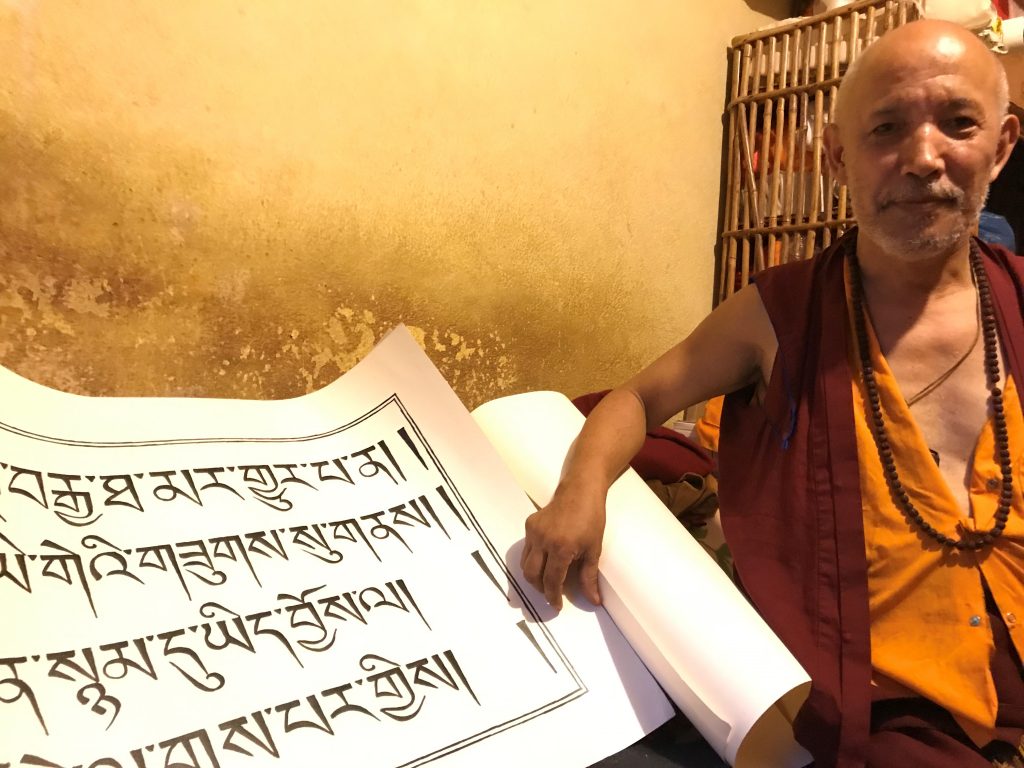 བརྒྱ་ཐ་མར་གྱུར་པ་ན། །
ཡི་གེའི་གཟུགས་སུ་གནས། །
སྙམ་དུ་ཡིད་བྱོས་ལ། །
ལ་གུས་པར་གྱིས། །